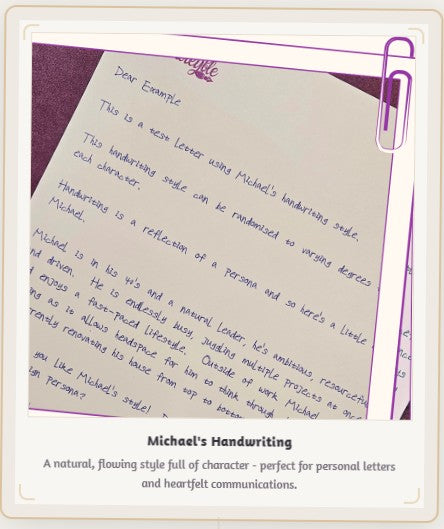 Dear Example
This is a test Letter using Michael's handwriting style.
This handwriting style can be randomised to varying degrees
each character.
Handwriting is a reflection of a persona and so here's a little
Michael.
Michael is in his 40's and a natural Leader, he's ambitious, resourceful
driven. He is endlessly busy, juggling multiple projects at once
enjoys a fast-paced lifestyle. Outside of work Michael
as it allows headspace for him to think through
renovating his house from top to
you like Michael's style!
persona?
Michael's Handwriting
A natural, flowing style full of character - perfect for personal letters
and heartfelt communications.